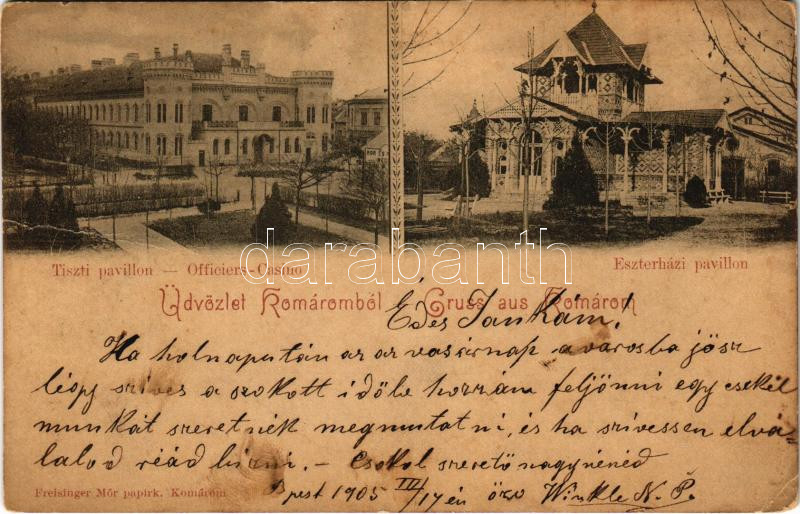 Tiszti pavillon — Officiers-Casino
Eszterházi pavillon
darabanth
Üdvözlet Komáromból Gruss aus Komárom
Édes Jankám!
Ha holnapután az az vasárnap a városba jösz
légy szíves a szokott időbe hozzám feljönni egy csekél
munkát szeretnék megmutatni, és ha szívessen elvá-
lalod réád bízni. – Csokol szerető nagynénéd
Bpest 1905 III/17én özv Winkle N. P.
Freisinger Mór papirk. Komárom